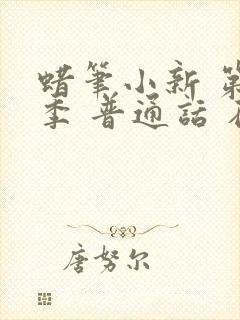 蜡笔小新 第
季 普通話
唐努尔